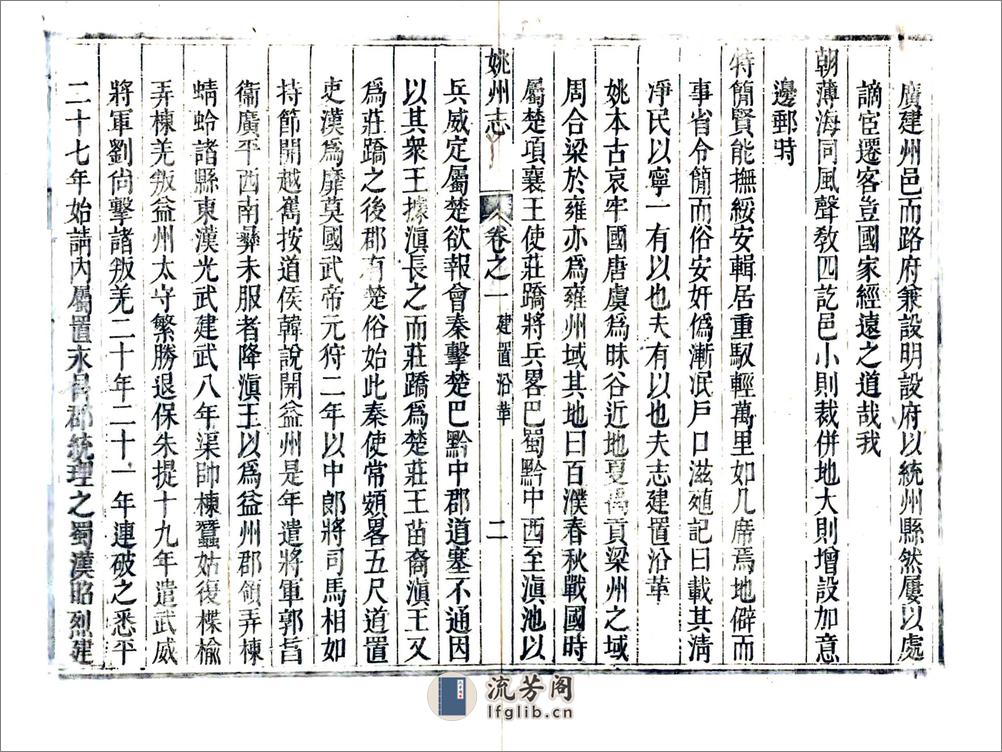 廣建州邑而路府兼設明設府以統州縣然屢以處
謫宦遷客豈國家經遠之道哉我
朝薄海同風聲敎四訖邑小則裁併地大則增設加意
邊郵時
特簡賢能撫綏安輯居重馭輕萬里如几席焉地僻而
事省令簡而俗安奸僞漸泯戶口滋殖記曰載其淸
淨民以寧一有以也夫有以也夫志建置沿革
姚本古哀牢國唐虞爲昧谷近地夏禹貢梁州之域
周合梁於雍亦爲雍州域其地曰百濮春秋戰國時
屬楚項襄王使莊蹻將兵畧巴蜀黔中西至滇池以
姚州志
卷之一 建置沿革 二
兵威定屬楚欲報會秦擊楚巴黔中郡道塞不通因
以其衆王據滇長之而莊蹻爲楚莊王苗裔滇王又
爲莊蹻之後郡有楚俗始此秦使常頞畧五尺道置
吏漢爲靡莫國武帝元狩二年以中郞將司馬相如
持節開越嶲按道侯韓說開益州是年遣將軍郭昌
衞廣平西南彝未服者降滇王以爲益州郡領弄棟
蜻蛉諸縣東漢光武建武八年渠帥棟蠶姑復楪楡
弄棟羌叛益州太守繁勝退保朱提十九年遣武威
將軍劉尚擊諸叛羌二十年二十一年連破之悉平
二十七年始請內屬置永昌郡統理之蜀漢昭烈建
流芳阁
lfglib.cn